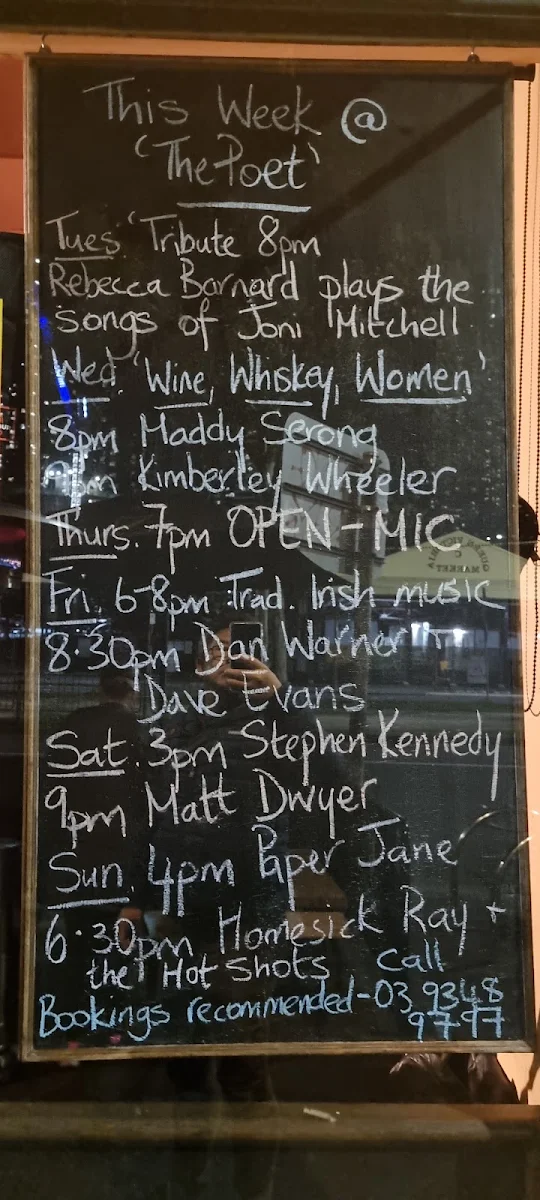 This Week @
'The Poet'
Tues 'Tribute 8pm
Rebecca Barnard plays the
songs of Joni Mitchell
Wed 'Wine, Whiskey, Women'
8pm Maddy Serong
9pm Kimberley Wheeler
Thurs. 7pm OPEN-MIC
QUEEN VICTORIA MARKET
Fri. 6-8pm Trad. Irish music
8.30pm Dan Warner +
Dave Evans
Sat. 3pm Stephen Kennedy
9pm Matt Dwyer
Sun. 4pm Paper Jane
6.30pm Homesick Ray +
the Hot Shots call
Bookings recommended-03 9348
9797